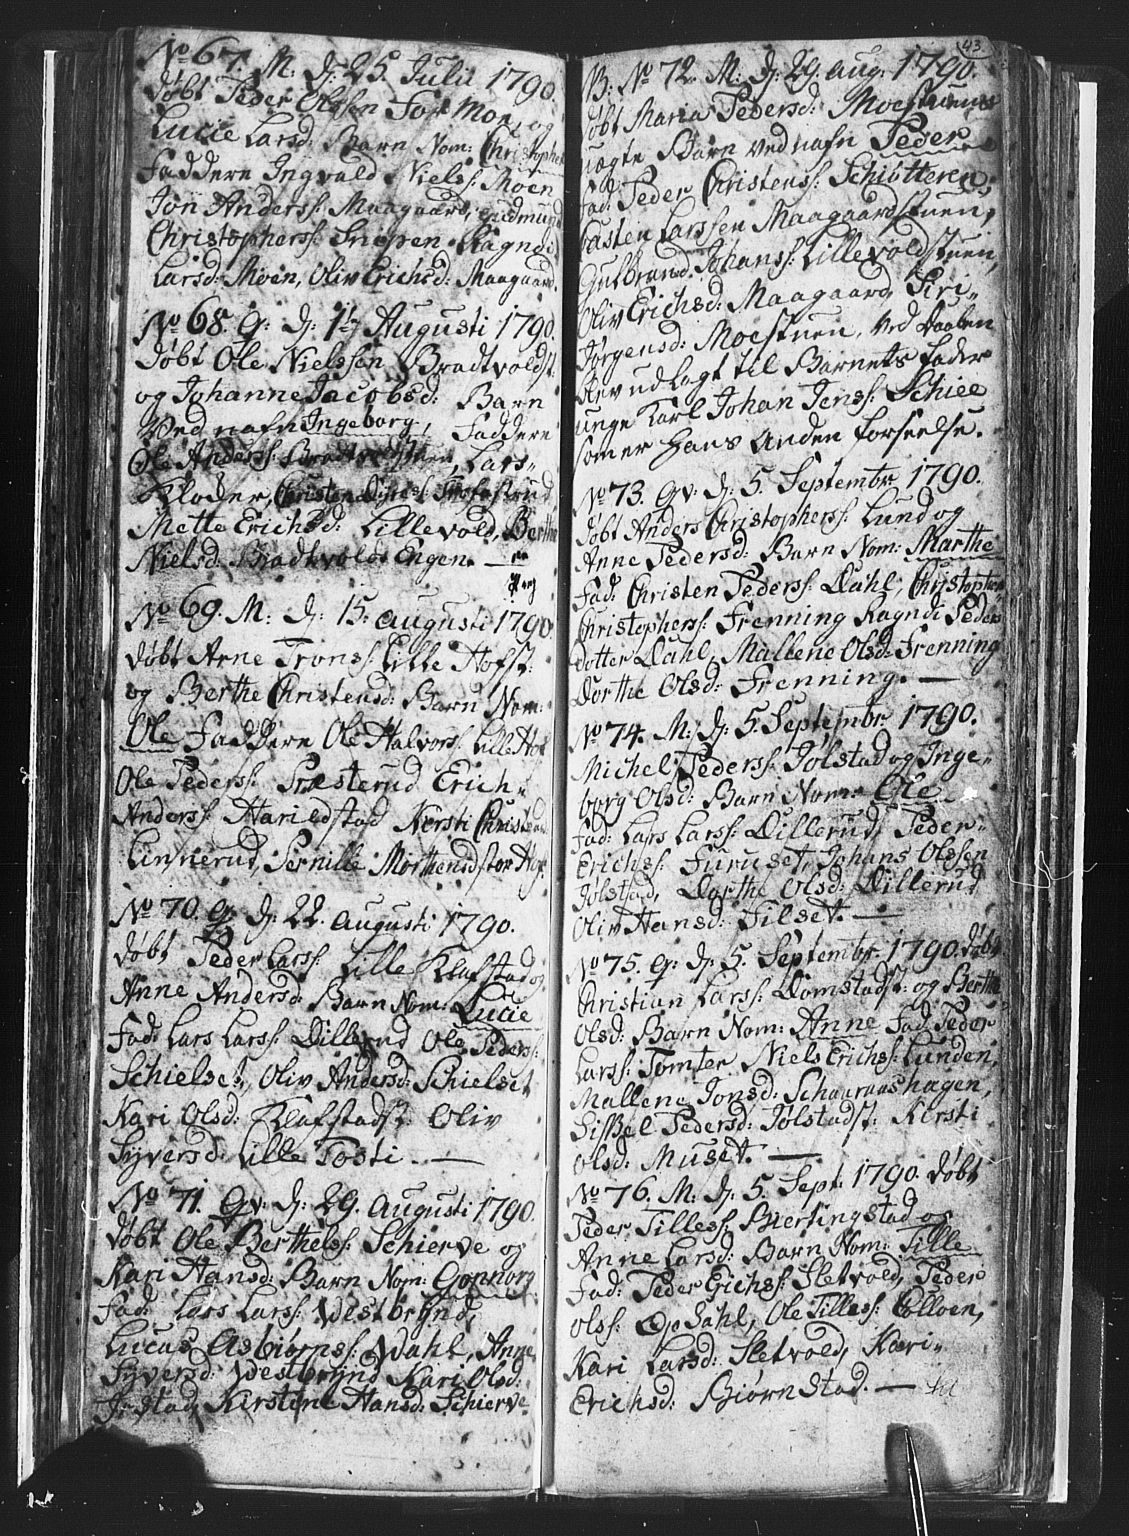 No 67. M: D: 25. Julii 1790.
døbt Peder Olssen Moe, og
Lucie Larsd: Barn Nom: Christopher
Faddere Ingvald Nielss: Moen
Jon Anderss: Maagaard, Gudmund
Christopherss: Snipen Ragndi
Larsd: Moen, Oliv Erichsd: Maagaard.
No 68. G: D: 1 Augusti 1790.
døbt Ole Nielssen Bradtvoldst:
og Johanne Jacobsd: Barn
Ved nafn Ingeborg, Faddere
Ole Anderss: Lars
Kloder, Christen
Mette Erichsd: Lillevold, Berthe
Nielsd: Bradtvolds Engen.
No 69. M: D: 15. Augusti 1790.
døbt Arne Tronss: Lille Hofst:
og Berthe Christensd: Barn Nom:
Ole Faddere Ole Halvorss: Lille Hof
Ole Pederss: Præsterud Erich
Anderss: Harildstad Kersti Christensd
Linnerud, Pernille Morthensd stor Hof
No 70. G: D: 22. Augusti 1790.
døbt Peder Larss: Lille Klafstad og
Anne Andersd: Barn Nom: Lucie
Fad: Lars Larss: Dillerud Ole Pederss:
Schielset, Oliv Andersd: Schielset
Kari Olsd: Klafstadst: Oliv
Syversd: Lille Tosti.
No 71. Gv: D: 29. Augusti 1790.
døbt Ole Berthelss: Schierve og
Kari Hansd: Barn Nom: Gonnorg
Fad: Lars Larss: Westbrynd,
Lucas Asbiørnss: Wdahl, Anne
Syversd: Westbrynd Kari Olsd:
Kirstine Hansd: Schierve
43.
No 72. M: D: 29. aug: 1790.
døbt Maria Pedersd: Moestuens
uægte Barn ved nafn Peder
Fad: Peder Christenss: Schiøtteren,
Casten Larssen Maagaardstuen,
Gulbrand Johanss: Lillevoldstuen,
Oliv Erichsd: Maagaard, Siri
Jørgensd: Moestuen, Ved Daaben
Blev udlagt til Barnets fader
unge Karl Johan Jenss: Schiee
som er Hans Anden forseelse.
No 73. Gv: D: 5. Septembr 1790.
døbt Anders Christopherss: Lund og
Anne Pedersd: Barn Nom: Marthe
Fad: Christen Pederss: Dahl, Christopher
Christopherss: Frenning Ragndi Peders
dotter Dahl, Mallene Olsd: Frenning
Dorthe Olsd: Frenning.
No 74. M: D: 5. Septembr 1790.
Michel Pederss: Jølstad og Inge
borg Olsd: Barn Nom: Ole
Fad: Lars Larss: Dillerud, Peder
Erichss: Furuset, Johans Olssen
Jølstad, Dorthe Olsd: Dillerud
Oliv Hansd: Filset.
No 75. G: D: 5. Septembr: 1790. døbt
Christian Larss: Domstadst: og Berthe
Olsd: Barn Nom: Anne Fad: Peder
Larss: Tomter Niels Erichss: Lunden,
Mallene Jonsd: Schaaraashagen,
Sissel Pedersd: Jølstadst: Kersti
Olsd: Muset.
No 76. M: D: 5. Sept: 1790. døbt
Peder Tilless: Biertingstad og
Anne Larsd: Barn Nom: Tille
Fad: Peder Erichss: Sletvold, Peder
Olss: Opdahl, Ole Tilless: Colloen,
Kari Larsd: Sletvold, Kari
Erichsd: Biørnstad.